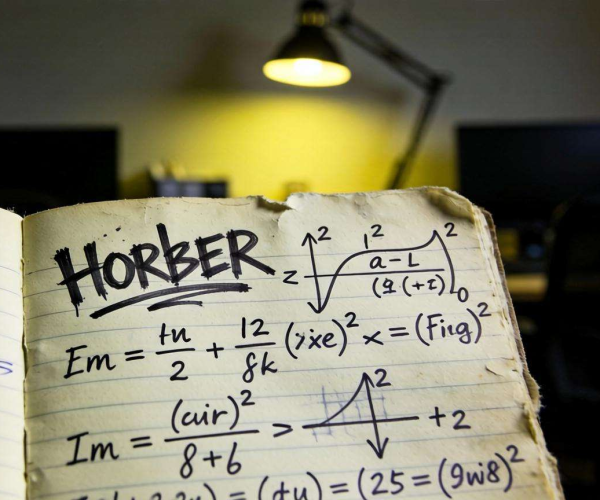 HORBER
2 1² 2
z a-L
(q (+τ) 0
Em = tu/2 + 12/8k (xe)² x = (Fing)²
Im = (cuir)²/8+6 > 2 +2
= (tu) = (25 = (9wi8)²